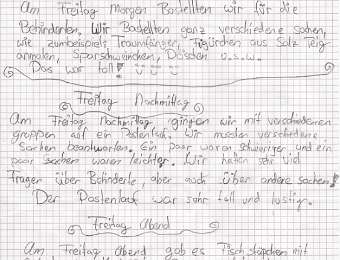 Am Freitag Morgen Bastellten wir für die
Behinderten. Wir Bastellten ganz verschiedene sachen,
wie zumbeispiels Traumfänger, Figürchen aus Salz Teig
anmalen, Sparschweinchen, Döschen u.s.w.
Das war toll!
Freitag Nachmittag
Am Freitag Nachmittag gingen wir mit verschiedenen
gruppen auf ein Postenlauf. Wir mussten verschiedene
Sachen beantworten. Ein paar waren schwiriger und ein
paar sachen waren leichter. Wir hatten sehr vid
Fragen über Behinderte, aber auch über andere sachen!
Der Postenlauf war sehr toll und lustig.
Freitag Abend
Am Freitag Abend gab es Fischstäpchen mit